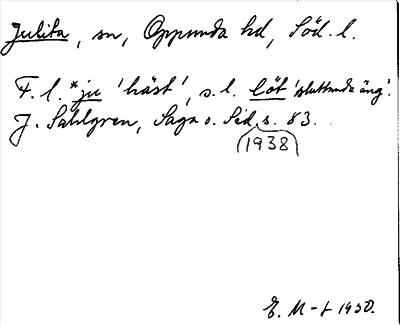 Julita, sn, Oppunda hd, Söd. l.
F. l. *ju 'häst', s. l. löt 'sluttande äng'.
J. Sahlgren, Saga o. Sed s. 83.
(1938)
E. M-t 1950.